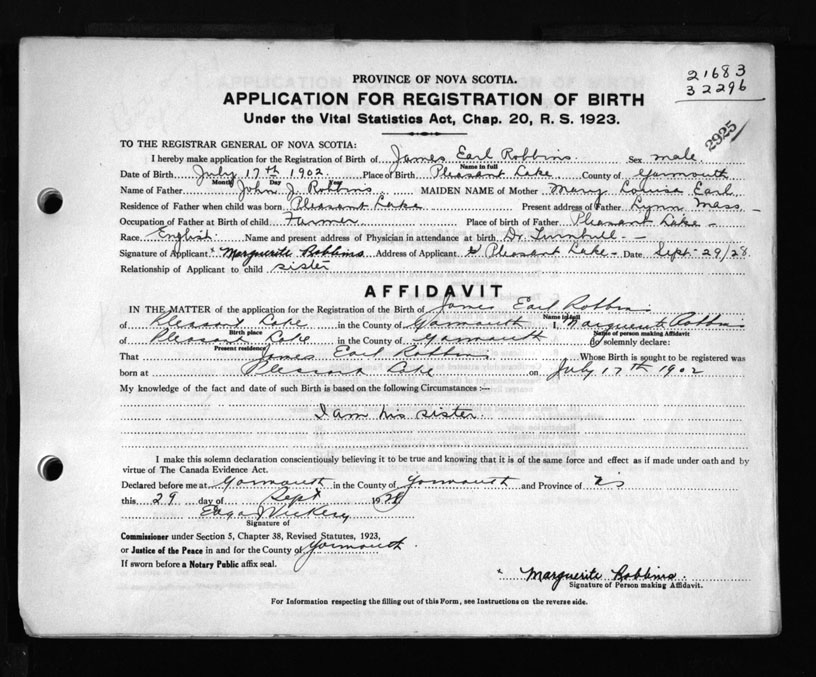 PROVINCE OF NOVA SCOTIA.
21683
32296
APPLICATION FOR REGISTRATION OF BIRTH
Under the Vital Statistics Act, Chap. 20, R. S. 1923.
2925
TO THE REGISTRAR GENERAL OF NOVA SCOTIA:
I hereby make application for the Registration of Birth of James Earl Robbins Sex male
Name in full
Date of Birth July 17th 1902. Place of Birth Pleasant Lake County of Yarmouth
Month Day
Name of Father John J. Robbins MAIDEN NAME of Mother Mary Louisa Earl
Residence of Father when child was born Pleasant Lake Present address of Father Lynn Mass
Occupation of Father at Birth of child Farmer Place of birth of Father Pleasant Lake
Race English Name and present address of Physician in attendance at birth Dr. Turnbull
Signature of Applicant Marguerite Robbins Address of Applicant Pleasant Lake Date Sept 29/28
Relationship of Applicant to child sister
AFFIDAVIT
IN THE MATTER of the application for the Registration of the Birth of James Earl Robbins
Name in full
of Pleasant Lake in the County of Yarmouth I, Marguerite Robbins
Birth place Name of person making Affidavit
of Pleasant Lake in the County of Yarmouth do solemnly declare:
Present residence
That James Earl Robbins Whose Birth is sought to be registered was
born at Pleasant Lake on July 17th 1902
My knowledge of the fact and date of such Birth is based on the following Circumstances :—
I am his sister.
I make this solemn declaration conscientiously believing it to be true and knowing that it is of the same force and effect as if made under oath and by
virtue of The Canada Evidence Act.
Declared before me at Yarmouth in the County of Yarmouth and Province of NS
this 29 day of Sept 1928
Signature of
Commissioner under Section 5, Chapter 38, Revised Statutes, 1923,
or Justice of the Peace in and for the County of Yarmouth.
If sworn before a Notary Public affix seal.
Marguerite Robbins
Signature of Person making Affidavit.
For Information respecting the filling out of this Form, see Instructions on the reverse side.